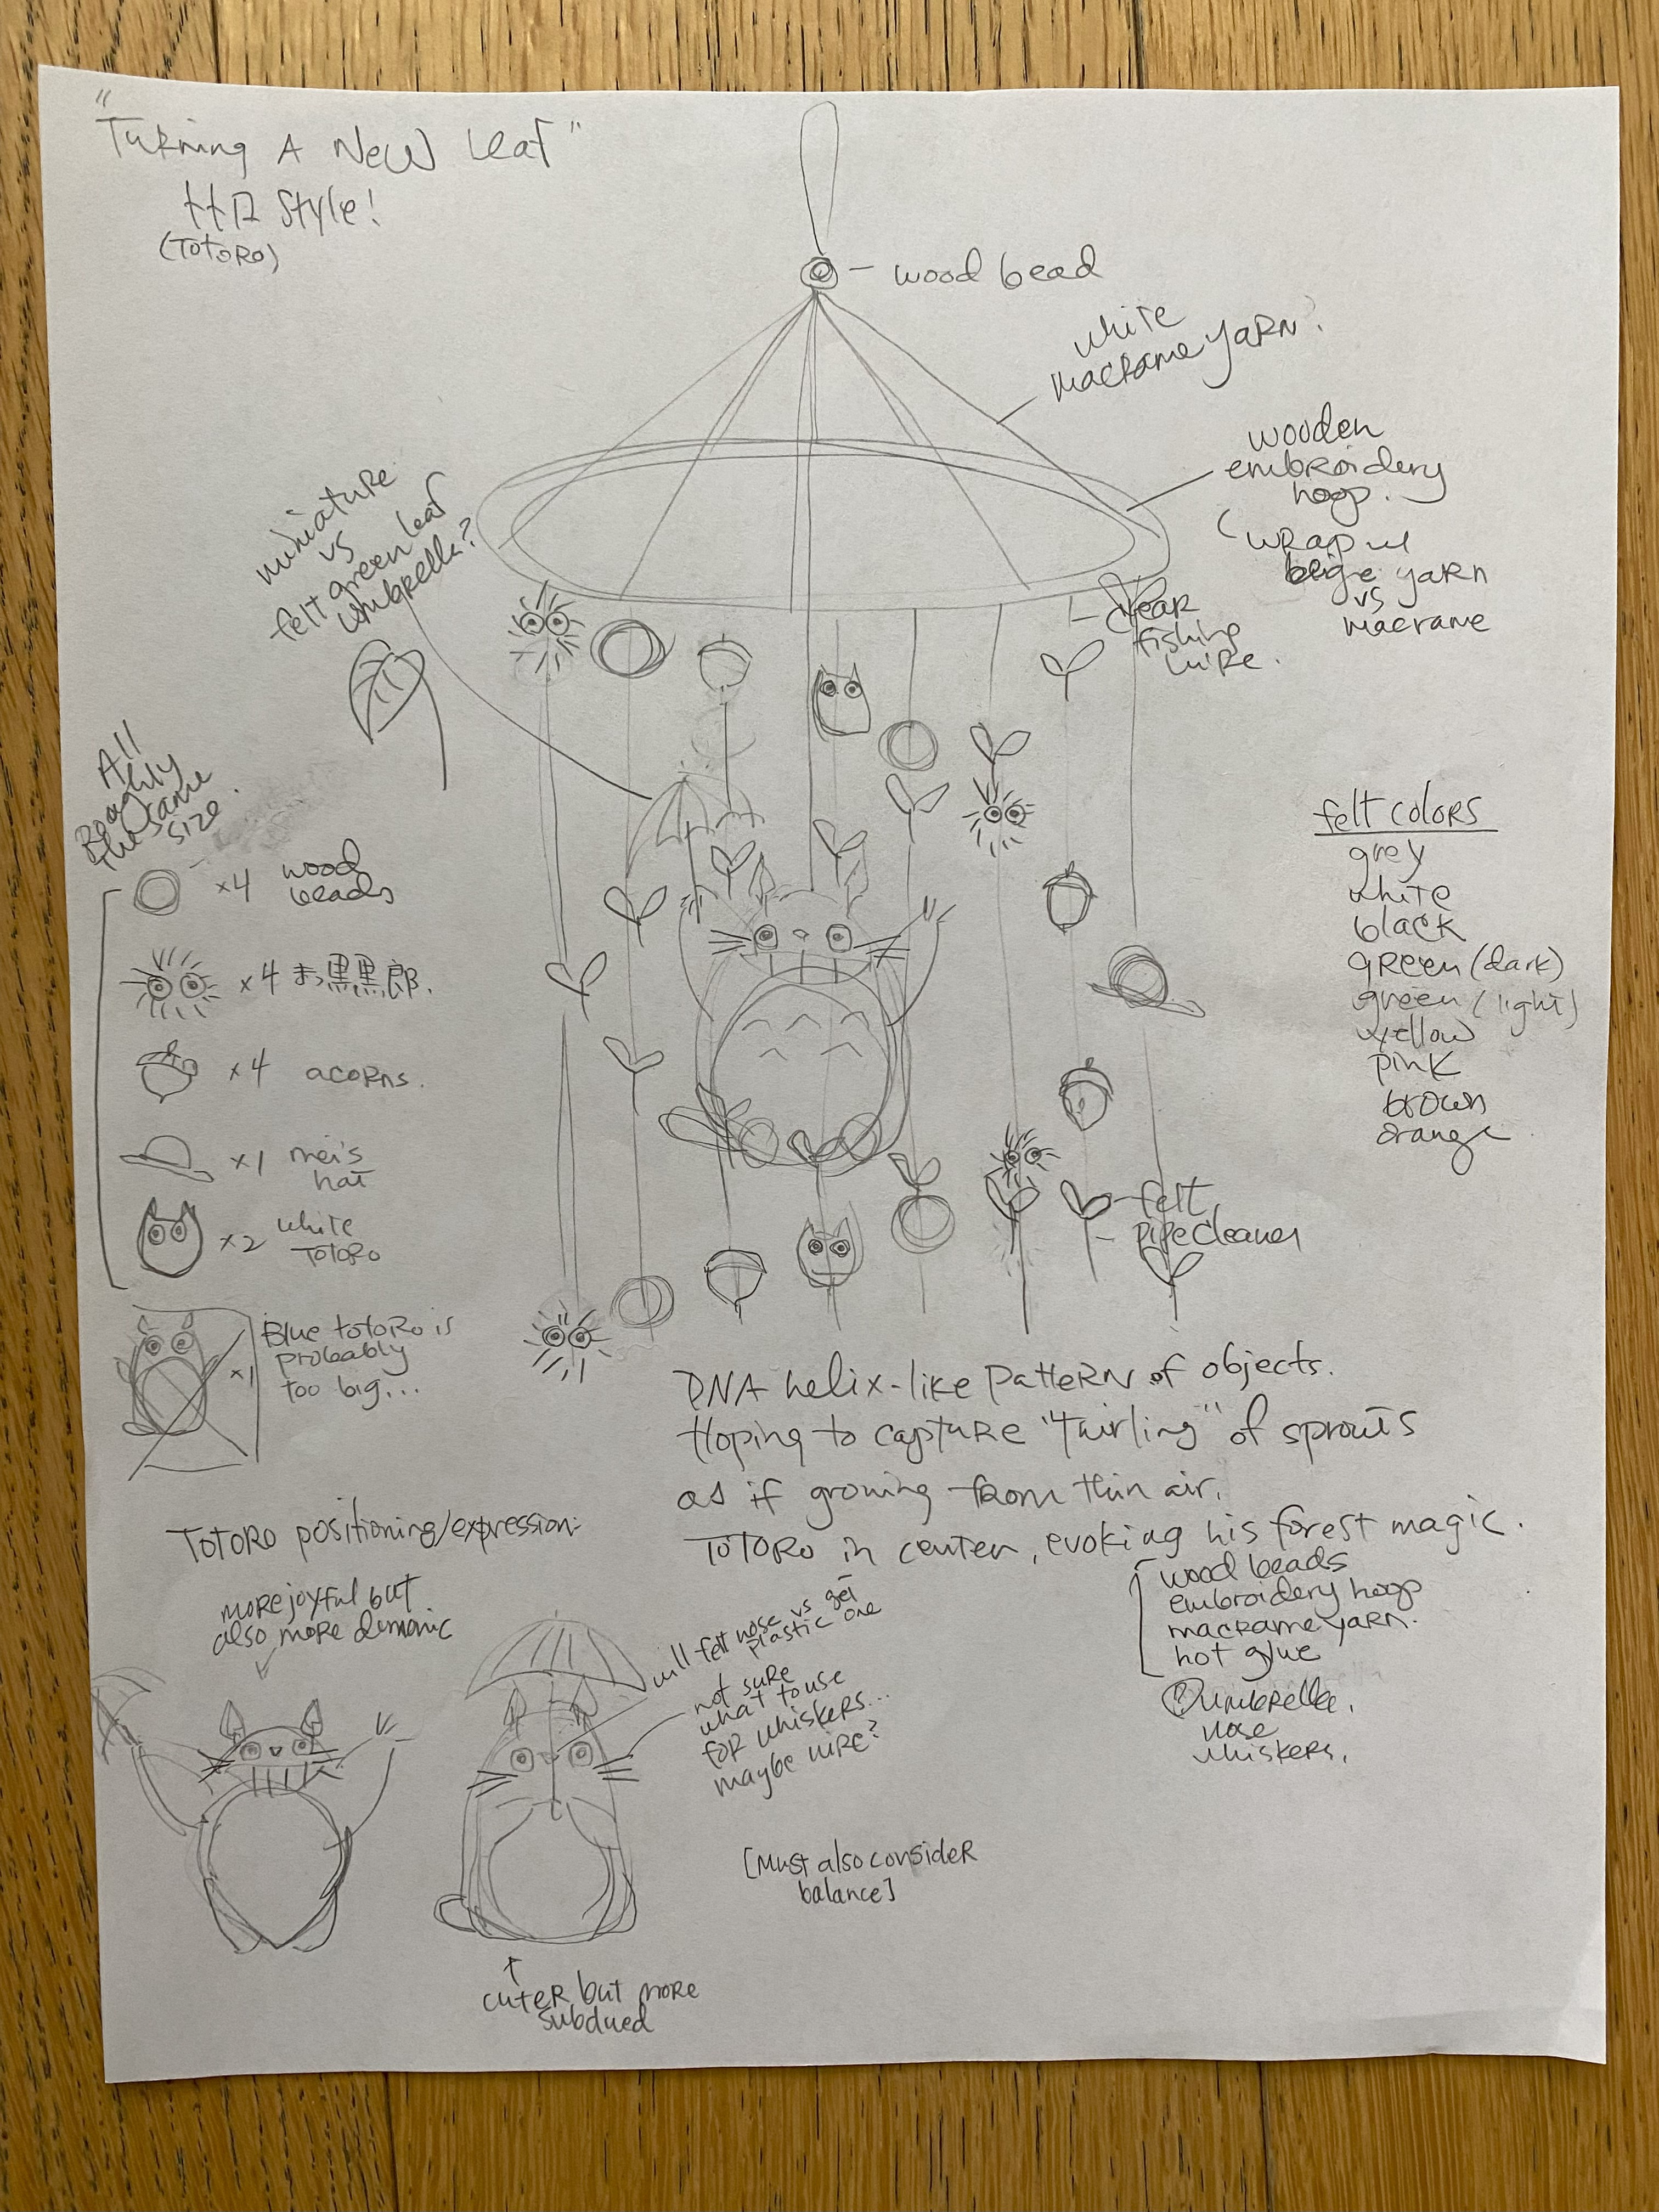 "Turning A New Leaf"
トトロ Style!
(TOTORO)
wood bead
white
macrame yarn?
wooden
embroidery
hoop.
(wrap w/
beige yarn
vs
macrame
miniature
vs
felt green leaf
umbrella?
clear
fishing
wire.
All
Roughly
the same
size.
x4 wood
beads
x4 まっ黒黒郎.
x4 acorns.
x1 mei's
hat
x2 white
TOTORO
x1
Blue totoro is
probably
too big...
felt colors
grey
white
black
green (dark)
green (light)
yellow
pink
brown
orange
felt
pipecleaner
DNA helix-like pattern of objects.
Hoping to capture "twirling" of sprouts
as if growing from thin air.
TOTORO in center, evoking his forest magic.
wood beads
embroidery hoop
macrame yarn.
hot glue
? umbrella.
nose
whiskers.
TOTORO positioning/expression:
more joyful but
also more demonic
will felt nose vs get
plastic one
not sure
what to use
for whiskers...
maybe wire?
[Must also consider
balance]
cuter but more
subdued